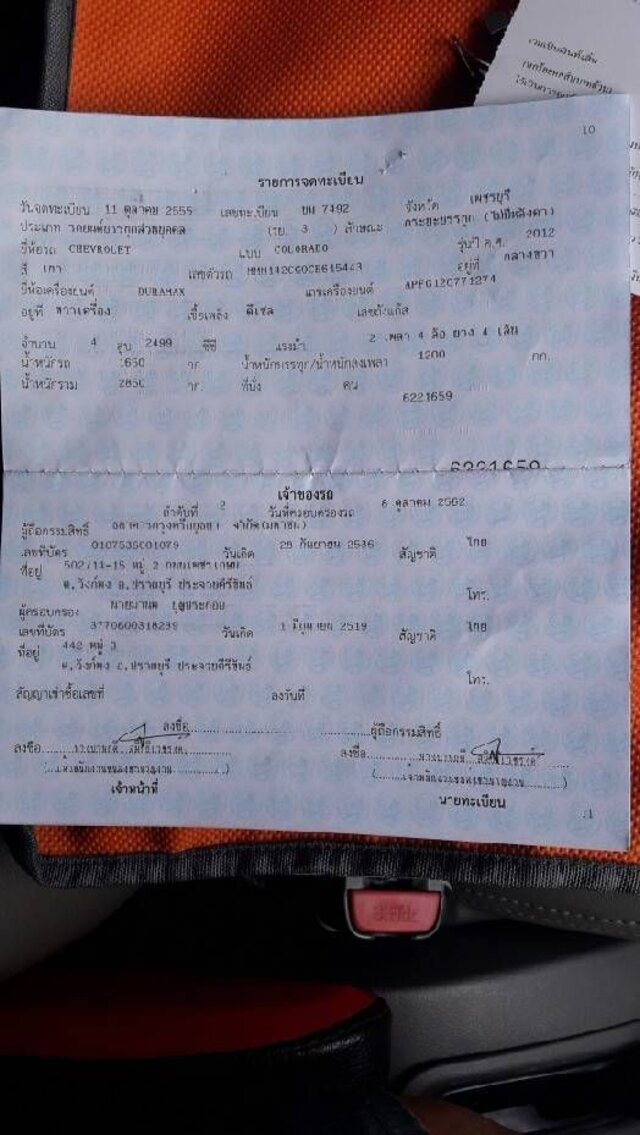 รวมเป็นเงินทั้งสิ้น
10
รายการจดทะเบียน
วันจดทะเบียน 11 ตุลาคม 2555 เลขทะเบียน 7492 จังหวัด เพชรบุรี
ประเภท รถยนต์บรรทุกส่วนบุคคล (รย. 3 ) ลักษณะ กระบะบรรทุก
ยี่ห้อรถ CHEVROLET แบบ COLORADO รุ่นปี ค.ศ. 2012
สี เทา เลขตัวรถ อยู่ที่ กลางขวา
ยี่ห้อเครื่องยนต์ DURAMAX เลขเครื่องยนต์
อยู่ที่ ขวาเครื่อง เชื้อเพลิง ดีเซล เลขถังแก๊ส
จำนวน 4 สูบ 2499 ซีซี แรงม้า 2 เพลา 4 ล้อ ยาง 4 เส้น
น้ำหนักรถ 1650 กก. น้ำหนักบรรทุก/น้ำหนักลงเพลา 1200 กก.
น้ำหนักรวม 2850 กก. ที่นั่ง คน
6221659
6221659
เจ้าของรถ
ลำดับที่ 2 วันที่ครอบครองรถ 6 ตุลาคม 2562
ผู้ถือกรรมสิทธิ์ ธนาคารกรุงศรีอยุธยา จำกัด(มหาชน)
เลขที่บัตร 0107535001079 วันเกิด 28 กันยายน 2536 สัญชาติ ไทย
ที่อยู่ 502/14-15 หมู่ 2 ถนนเพชรเกษม
ต.วังก์พง อ.ปราณบุรี ประจวบคีรีขันธ์ โทร.
ผู้ครอบครอง
เลขที่บัตร 3770600318239 วันเกิด 1 มิถุนายน 2519 สัญชาติ ไทย
ที่อยู่ 442 หมู่ 3
ต.วังก์พง อ.ปราณบุรี ประจวบคีรีขันธ์ โทร.
สัญญาเช่าซื้อเลขที่ ลงวันที่
ลงชื่อ ผู้ถือกรรมสิทธิ์
ลงชื่อ ลงชื่อ
เจ้าหน้าที่ นายทะเบียน
11
PRESS